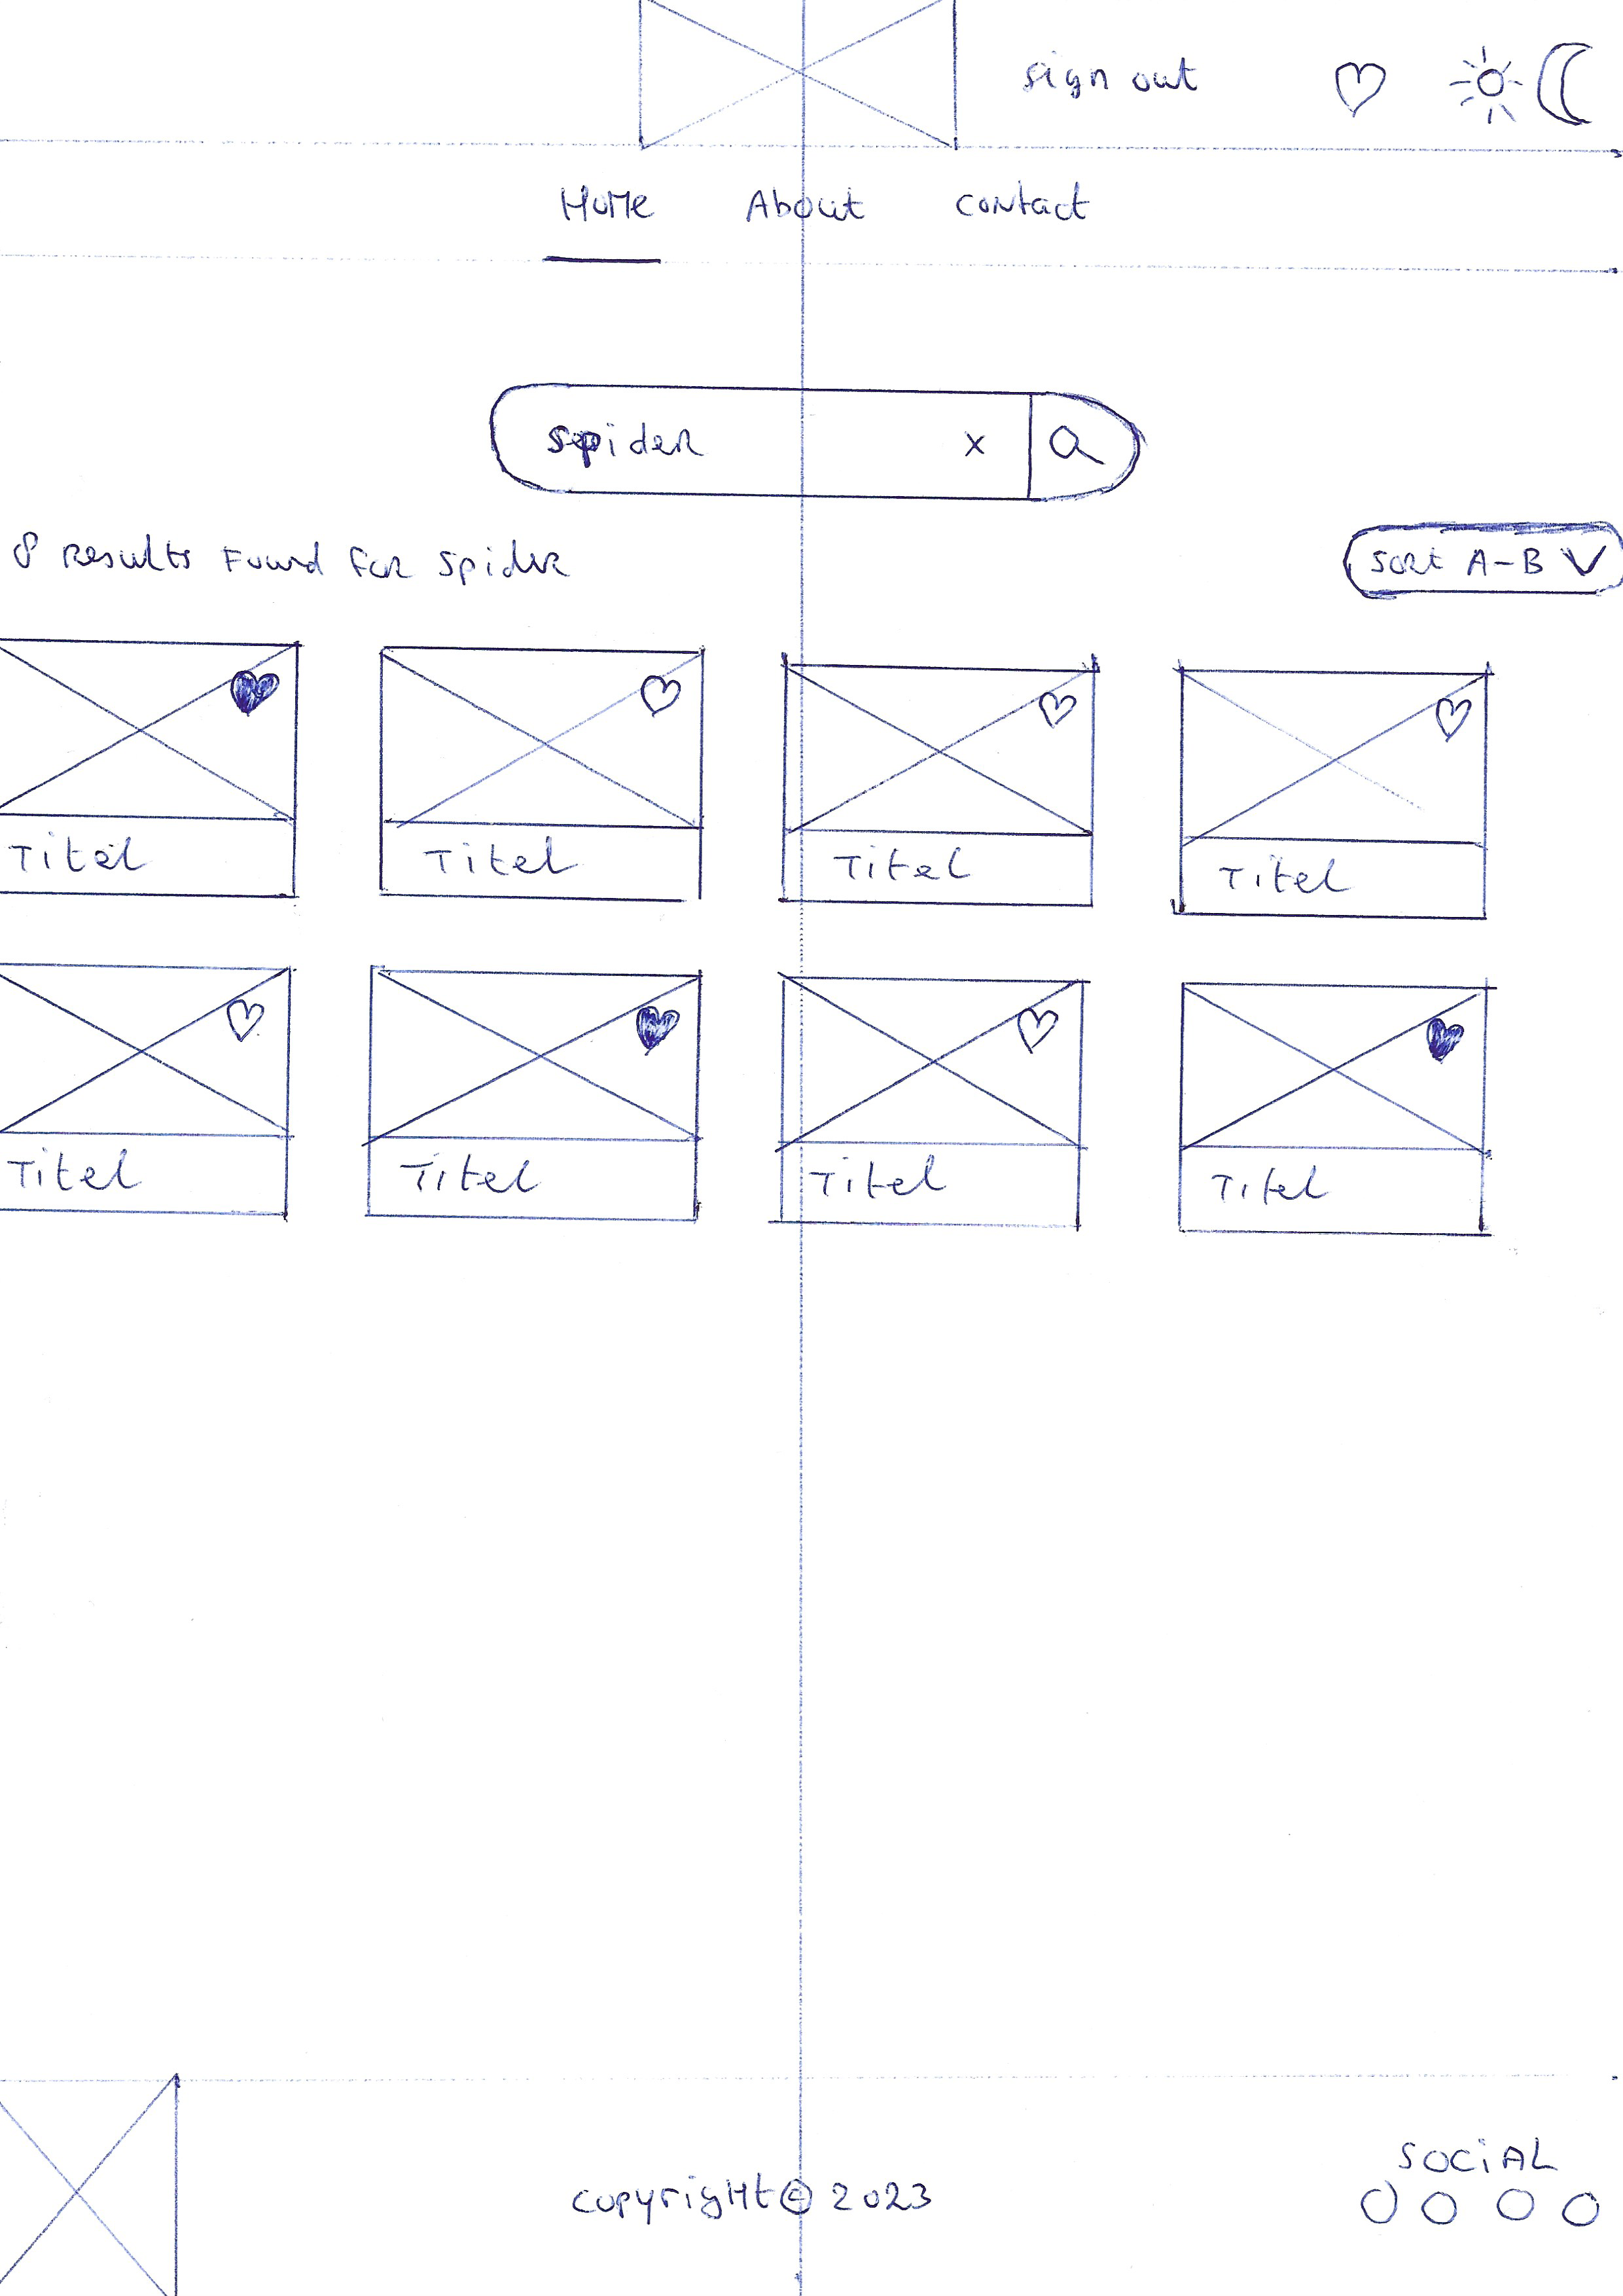 sign out
Home About contact
spider x
8 Results Found For Spider
Sort A-B
Titel Titel Titel Titel
Titel Titel Titel Titel
SOCiAL
copyright © 2023